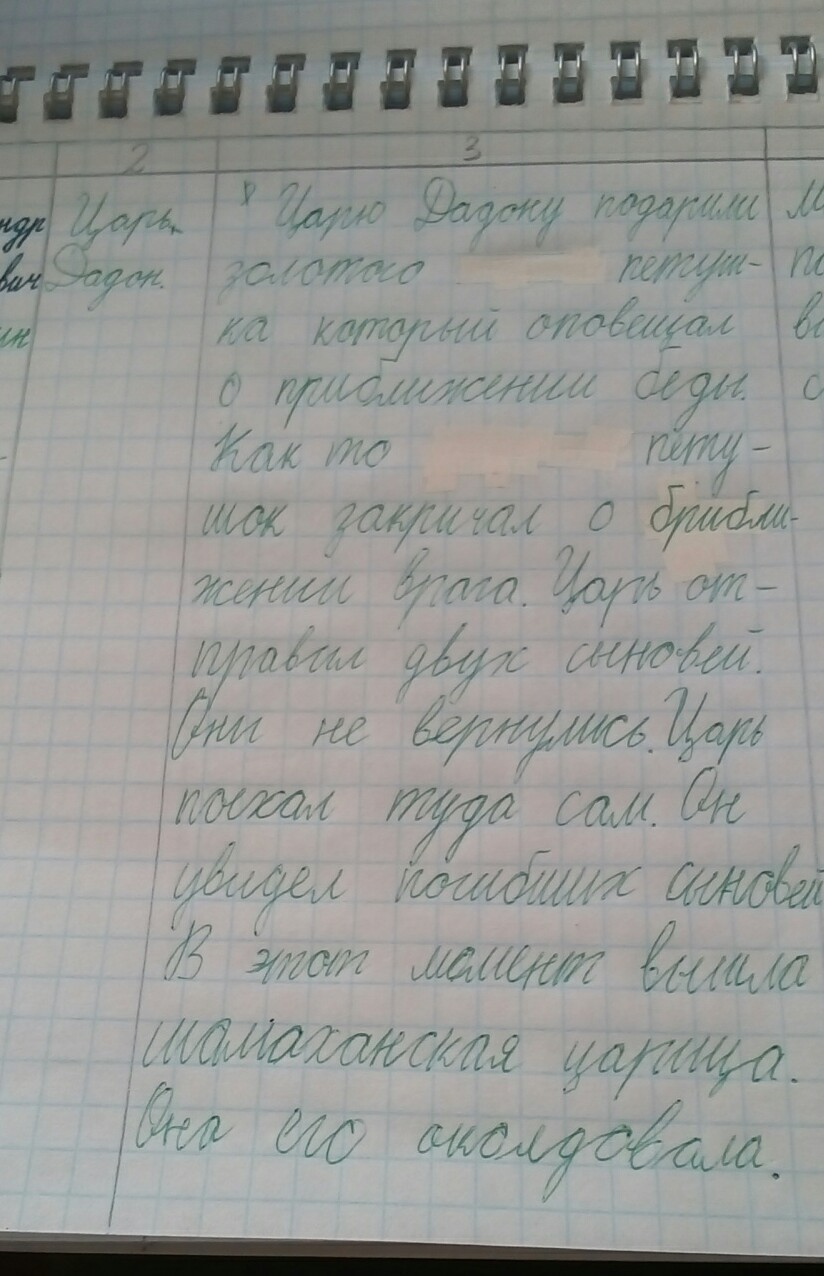 2 3
Царь Царю Дадону подарили
Дадон. золотого петуш-
ка который оповещал
о приближении беды.
Как то пету-
шок закричал о брибли-
жении врага. Царь от-
правил двух сыновей.
Они не вернулись. Царь
поехал туда сам. Он
увидел погибших сыновей
В этот момент вышла
шамаханская царица.
Она его околдовала.